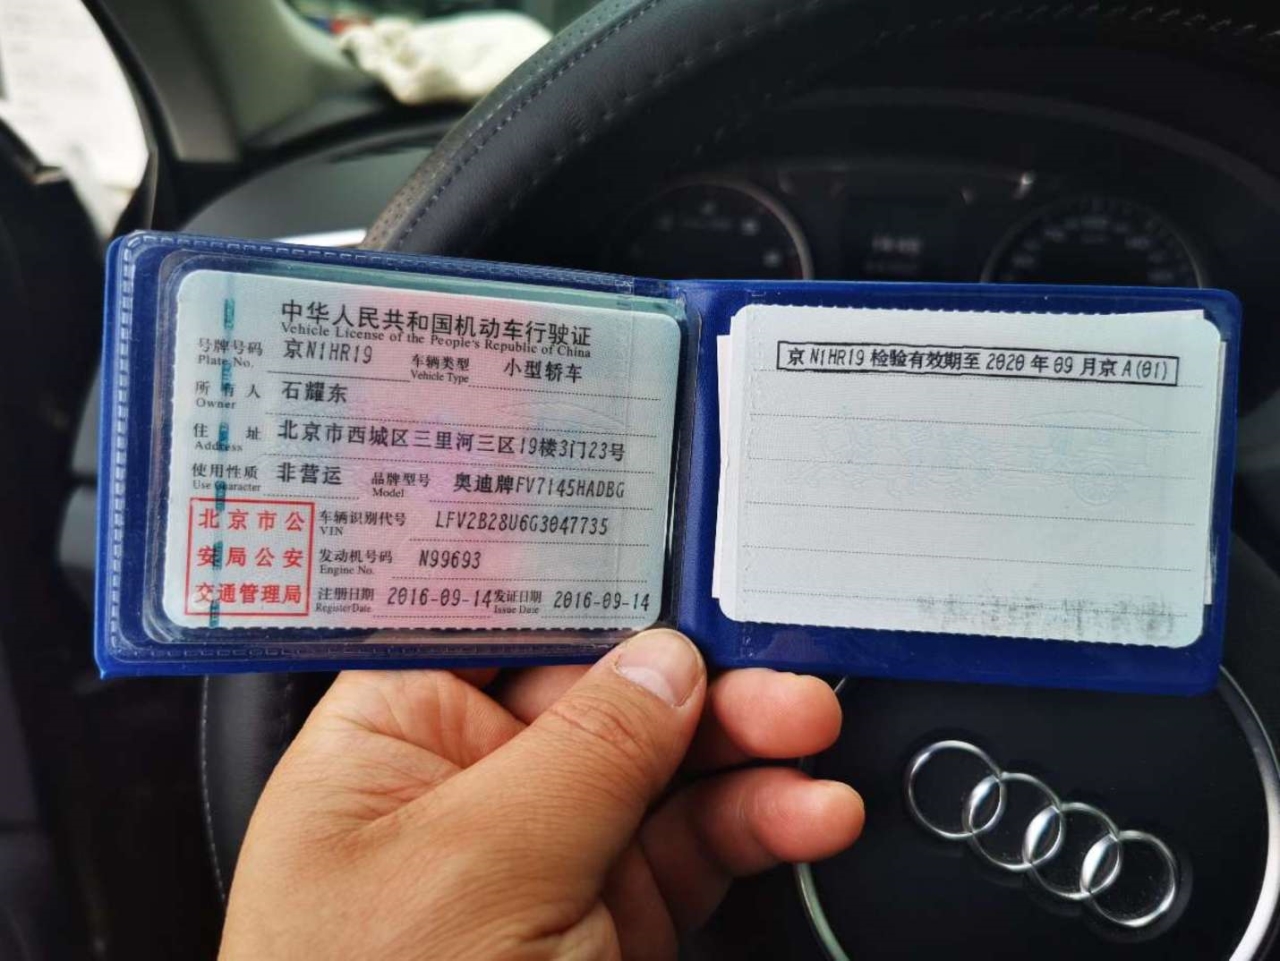 中华人民共和国机动车行驶证
Vehicle License of the People's Republic of China
号牌号码 京N1HR19 车辆类型 小型轿车
Plate No. Vehicle Type
所有人 石耀东
Owner
住址 北京市西城区三里河三区19楼3门23号
Address
使用性质 非营运 品牌型号 奥迪牌FV7145HADBG
Use Character Model
北京市公安局公安交通管理局
车辆识别代号 LFV2B28U6G3047735
VIN
发动机号码 N99693
Engine No.
注册日期 2016-09-14 发证日期 2016-09-14
Register Date Issue Date
京N1HR19检验有效期至2020年09月京A(01)